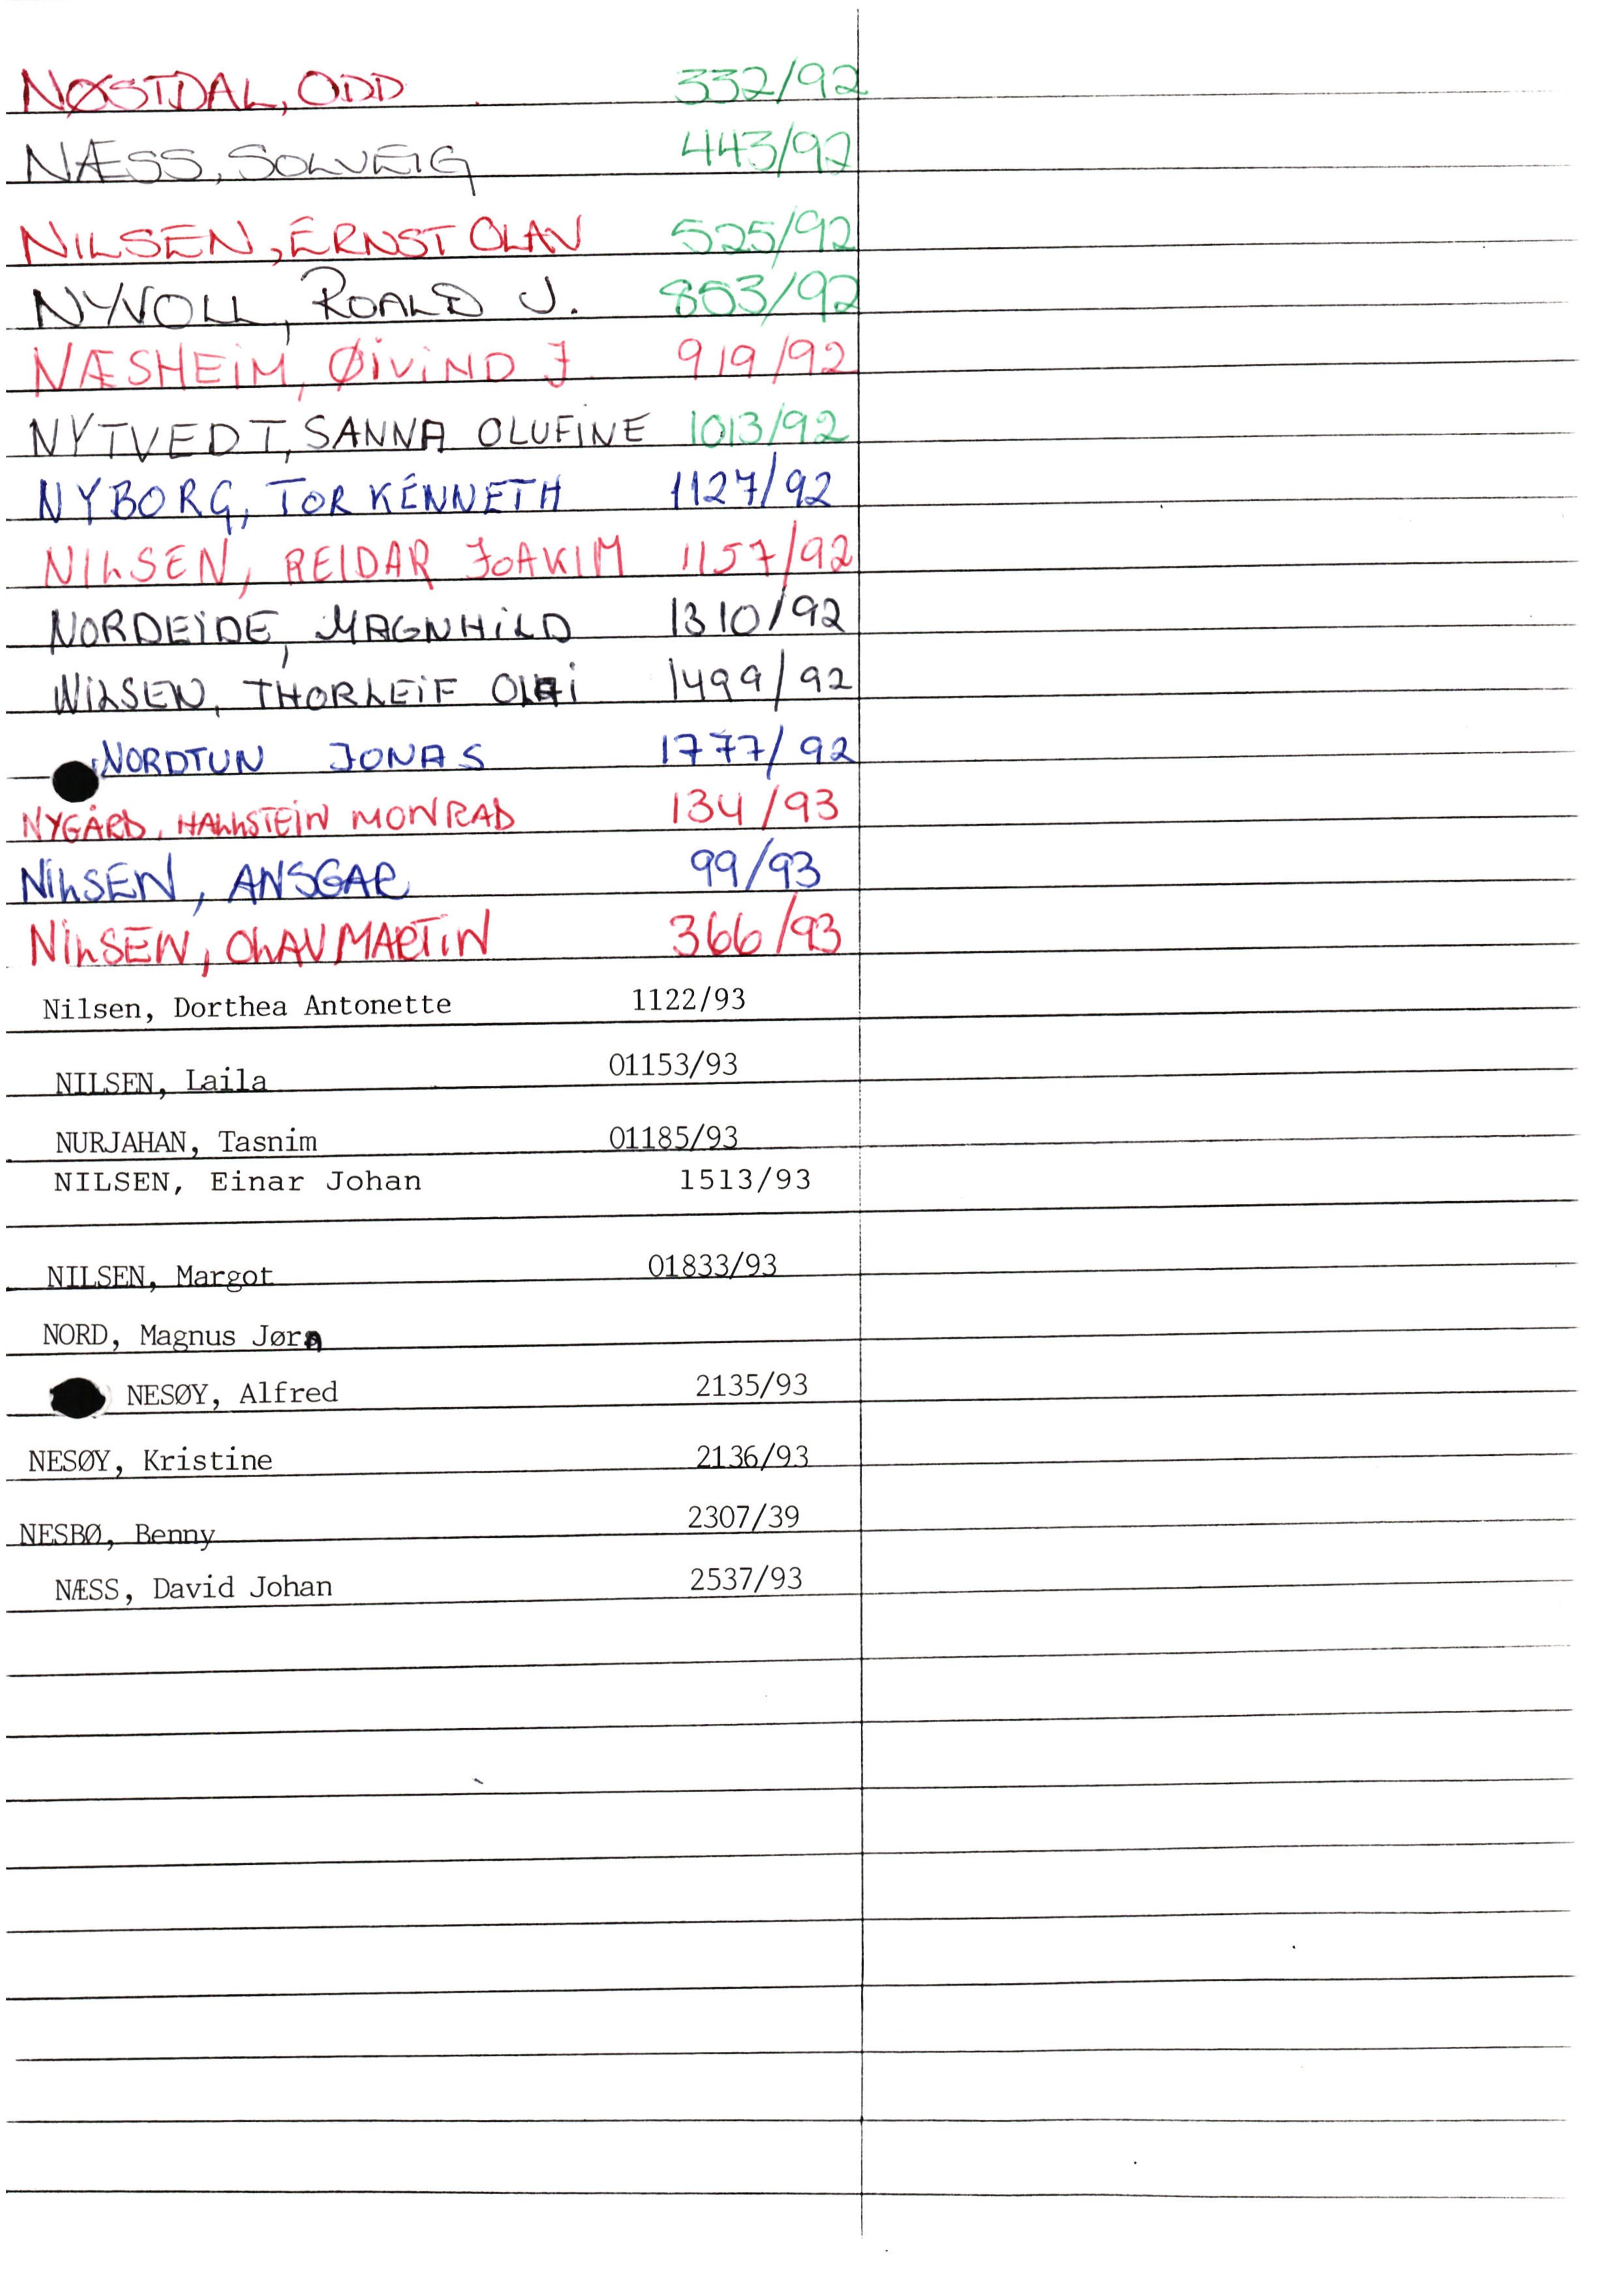 NØSTDAL, ODD 332/92
NÆSS, SOLVEIG 443/92
NILSEN, ERNST OLAV 525/92
NYVOLL, ROALD J. 853/92
NÆSHEIM, ØIVIND J 919/92
NYTVEDT, SANNA OLUFINE 1013/92
NYBORG, TOR KENNETH 1127/92
NILSEN, REIDAR JOAKIM 1157/92
NORDEIDE, MAGNHILD 1310/92
NILSEN, THORLEIF 1499/92
NORDTUN JONAS 1777/92
NYGÅRD, HALLSTEIN MONRAD 134/93
NILSEN, ANSGAR 99/93
NILSEN, OLAV MARTIN 366/93
Nilsen, Dorthea Antonette 1122/93
NILSEN, Laila 01153/93
NURJAHAN, Tasnim 01185/93
NILSEN, Einar Johan 1513/93
NILSEN, Margot 01833/93
NORD, Magnus Jørn
NESØY, Alfred 2135/93
NESØY, Kristine 2136/93
NESBØ, Benny 2307/39
NÆSS, David Johan 2537/93